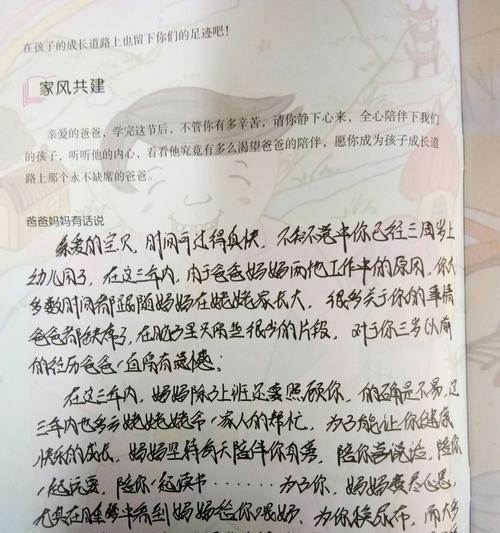 在孩子的成长道路上也留下你们的足迹吧!
家风共建
亲爱的爸爸,学完这节后,不管你有多辛苦,请你静下心来,全心陪伴下我们
的孩子,听听他的内心,看看他究竟有多么渴望爸爸的陪伴,愿你成为孩子成长道
路上那个永不缺席的爸爸。
爸爸妈妈有话说
亲爱的宝贝,时间过得真快,不知不觉中你已经三周岁上
幼儿园了,在这三年内,由于爸爸妈妈两地工作的原因,你大
多数时间都跟随妈妈在姥姥家长大,很多关于你的事情
爸爸都缺席了,在脑子里只有些很少的片段,对于你三岁以前
的经历爸爸一直深有遗憾;
在这三年内,妈妈除了上班还要照顾你,的确是不易,这
三年内也多亏姥姥姥爷一家人的帮忙,为了能让你健康
快乐的成长,妈妈坚持每天陪伴你身旁,陪你说话,陪你
一起玩耍,陪你一起读书………为了你,妈妈费尽心思,
尤其在睡梦中看到妈妈给你喂奶、为你换尿布,而大多